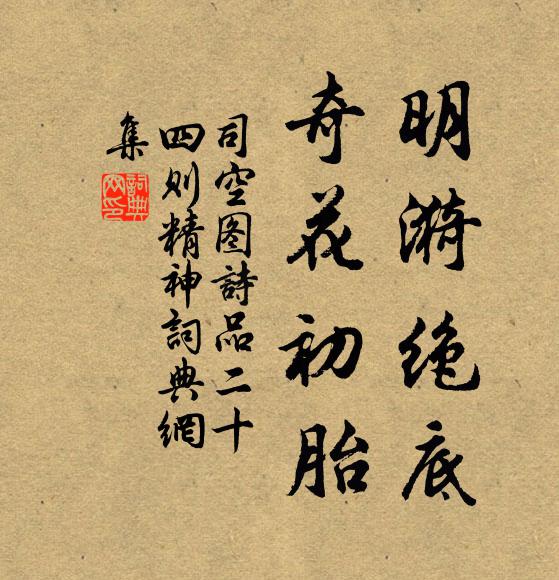 明漪绝底
奇花初胎
司空图詩品二十
四则精神詞典網
集
詞典网印